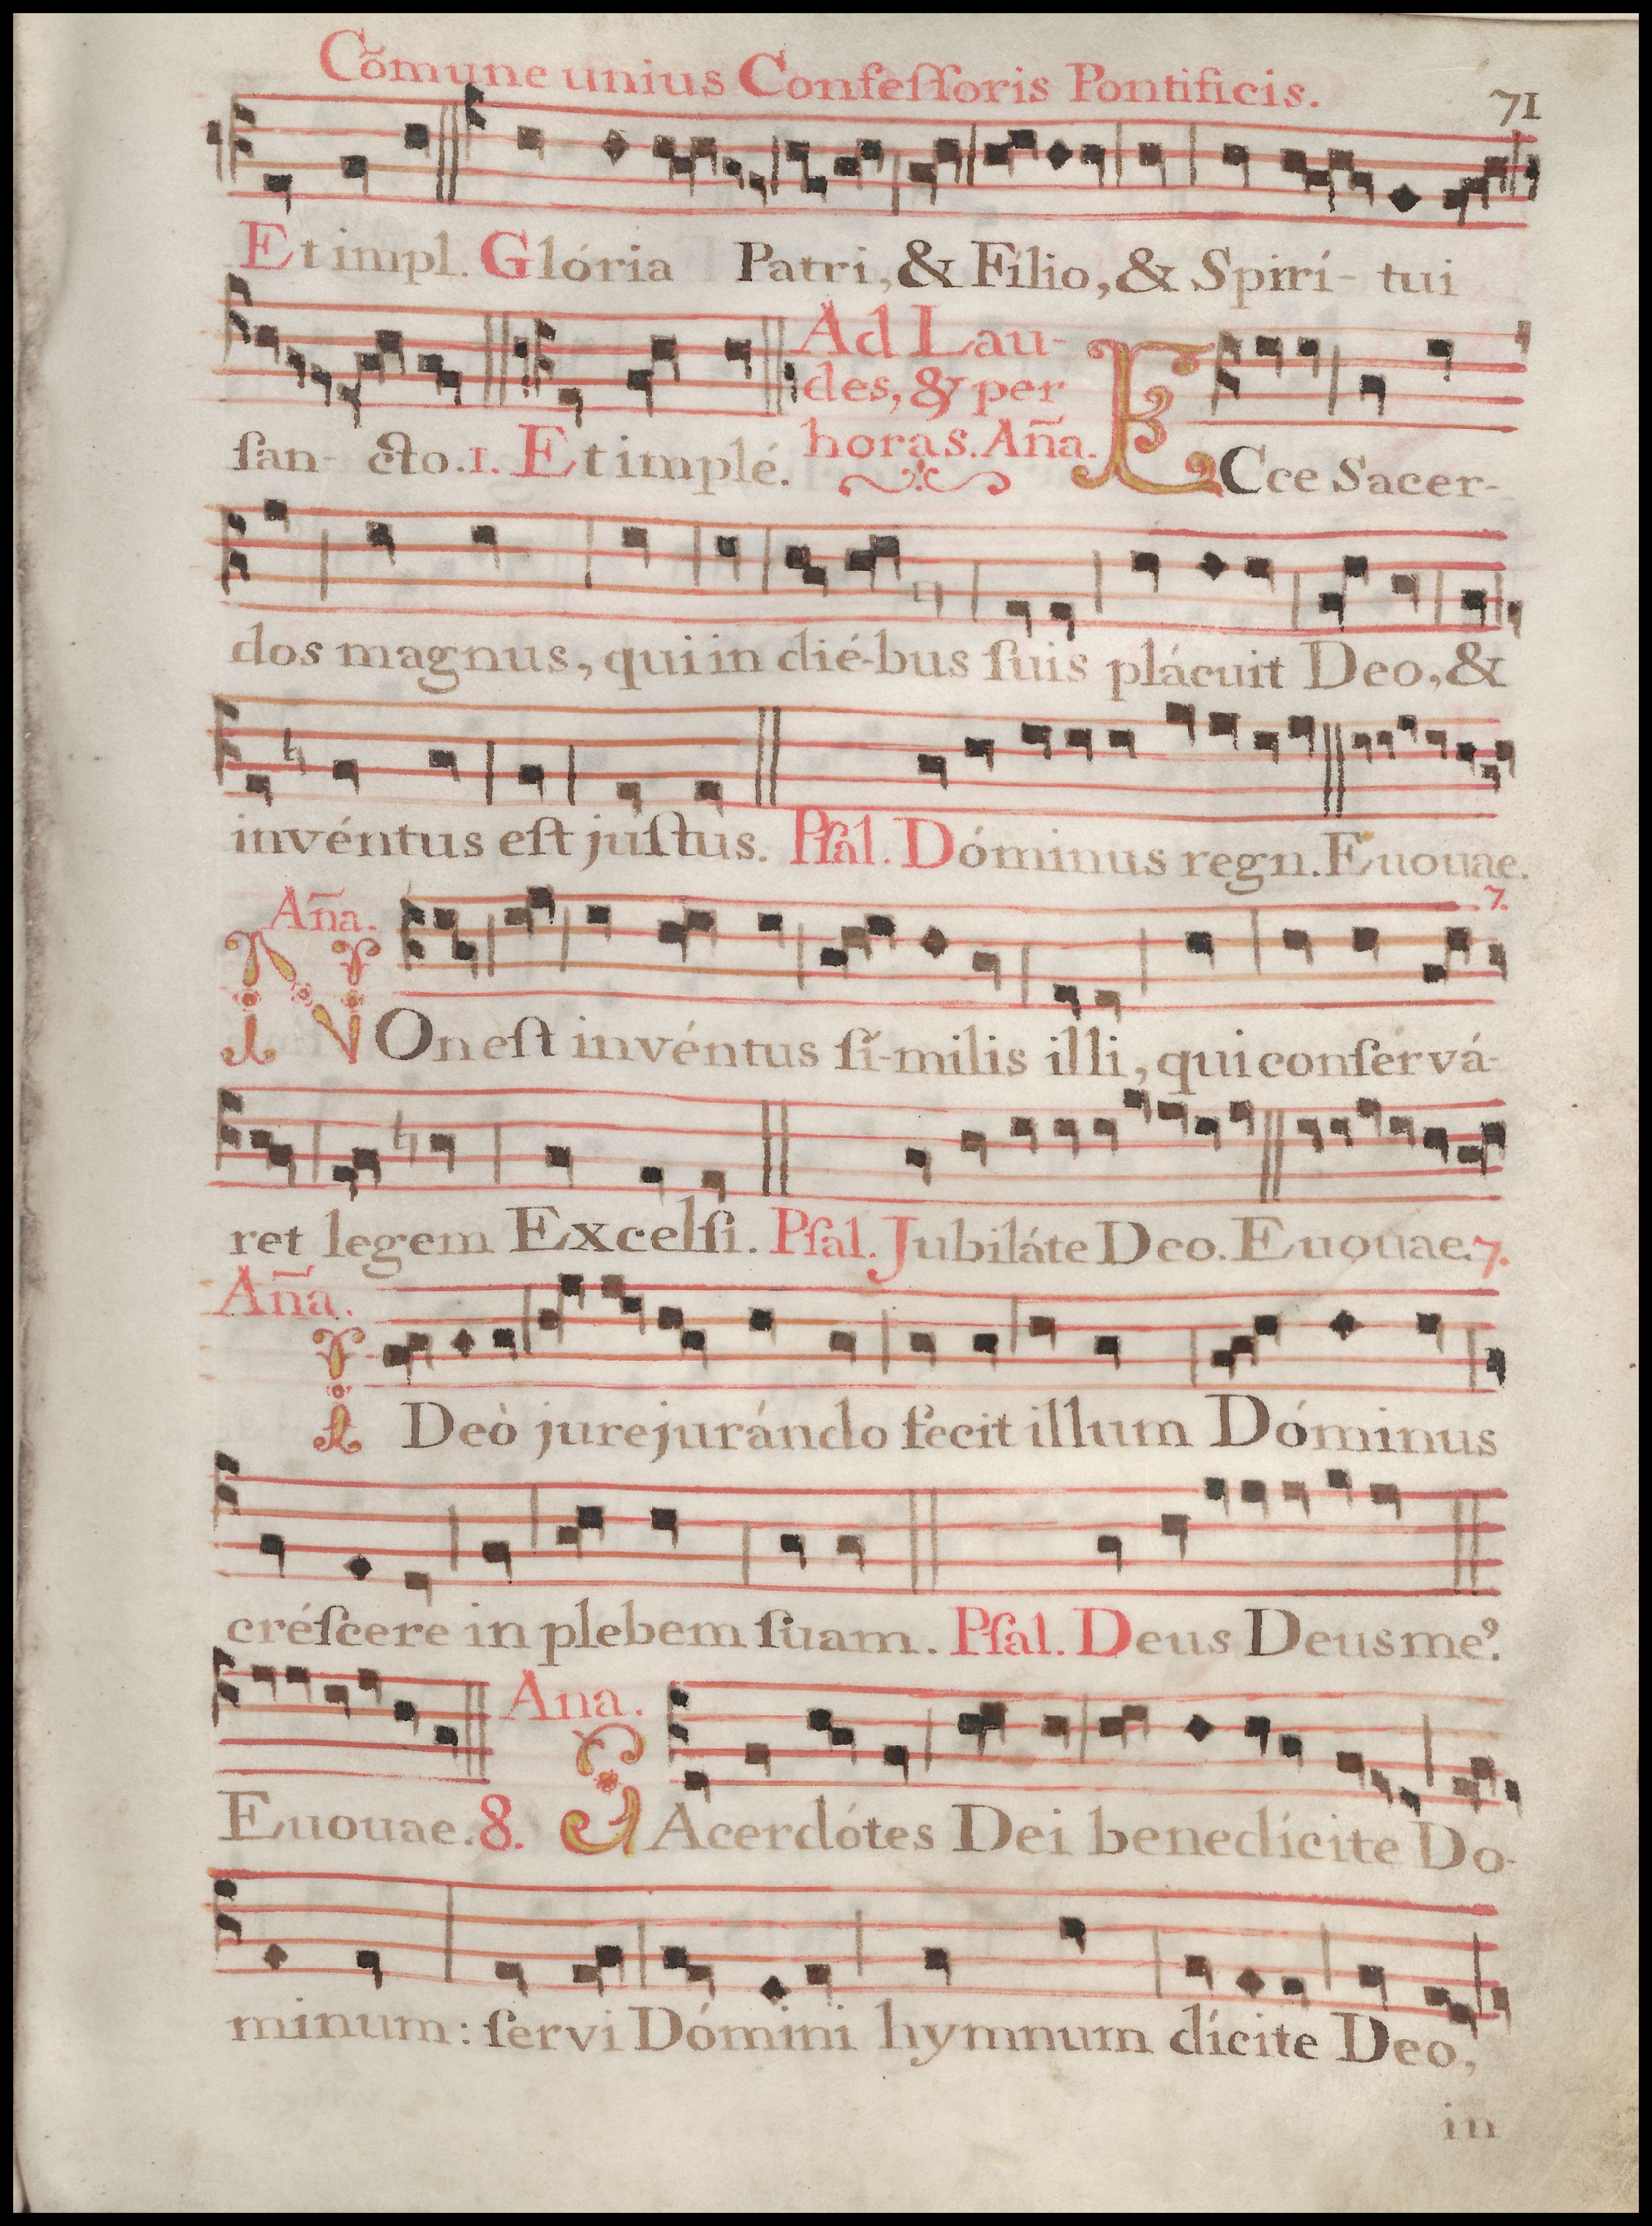 Cõmune unius Confeſſoris Pontificis.
71
Et impl. Glória Patri, & Filio, & Spirí- tui
ſan- cto. 1. Et implé. Ad Lau-
des, & per
horas. Aña. ECce Sacer-
dos magnus, qui in dié-bus ſuis plácuit Deo, &
invéntus eſt juſtus. Pſal. Dóminus regn. Euouae.
7.
Aña.
NOn eſt invéntus ſí-milis illi, qui conſervá-
ret legem Excelſi. Pſal. Jubiláte Deo. Euouae. 7.
Aña.
IDeò jurejurándo fecit illum Dóminus
créſcere in plebem ſuam. Pſal. Deus Deus me9.
Euouae. 8. Ana. SAcerdótes Dei benedícite Do-
minum: ſervi Dómini hymnum dícite Deo,
in